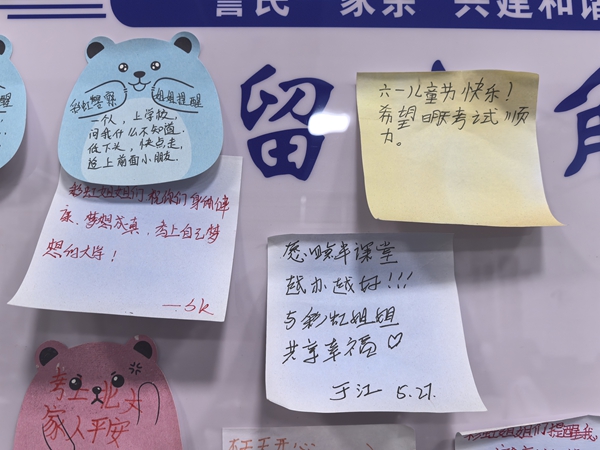 警民一家亲 共建和谐
留
六一儿童节快乐！
希望眀眹考试顺
力。
彩虹警察 姐姐提醒
一个人，上学校，
问我什么不知道，
低下头，快点走，
追上前面小朋友
彩虹姐姐们祝你们身体健
康、梦想成真、考上自己梦
想的大学！
—sk
课堂
越办越好!!!
与彩虹姐姐
共享幸福♡
于江 5.27.
考上北大
家人平安
天天开心
彩虹姐姐们提醒我